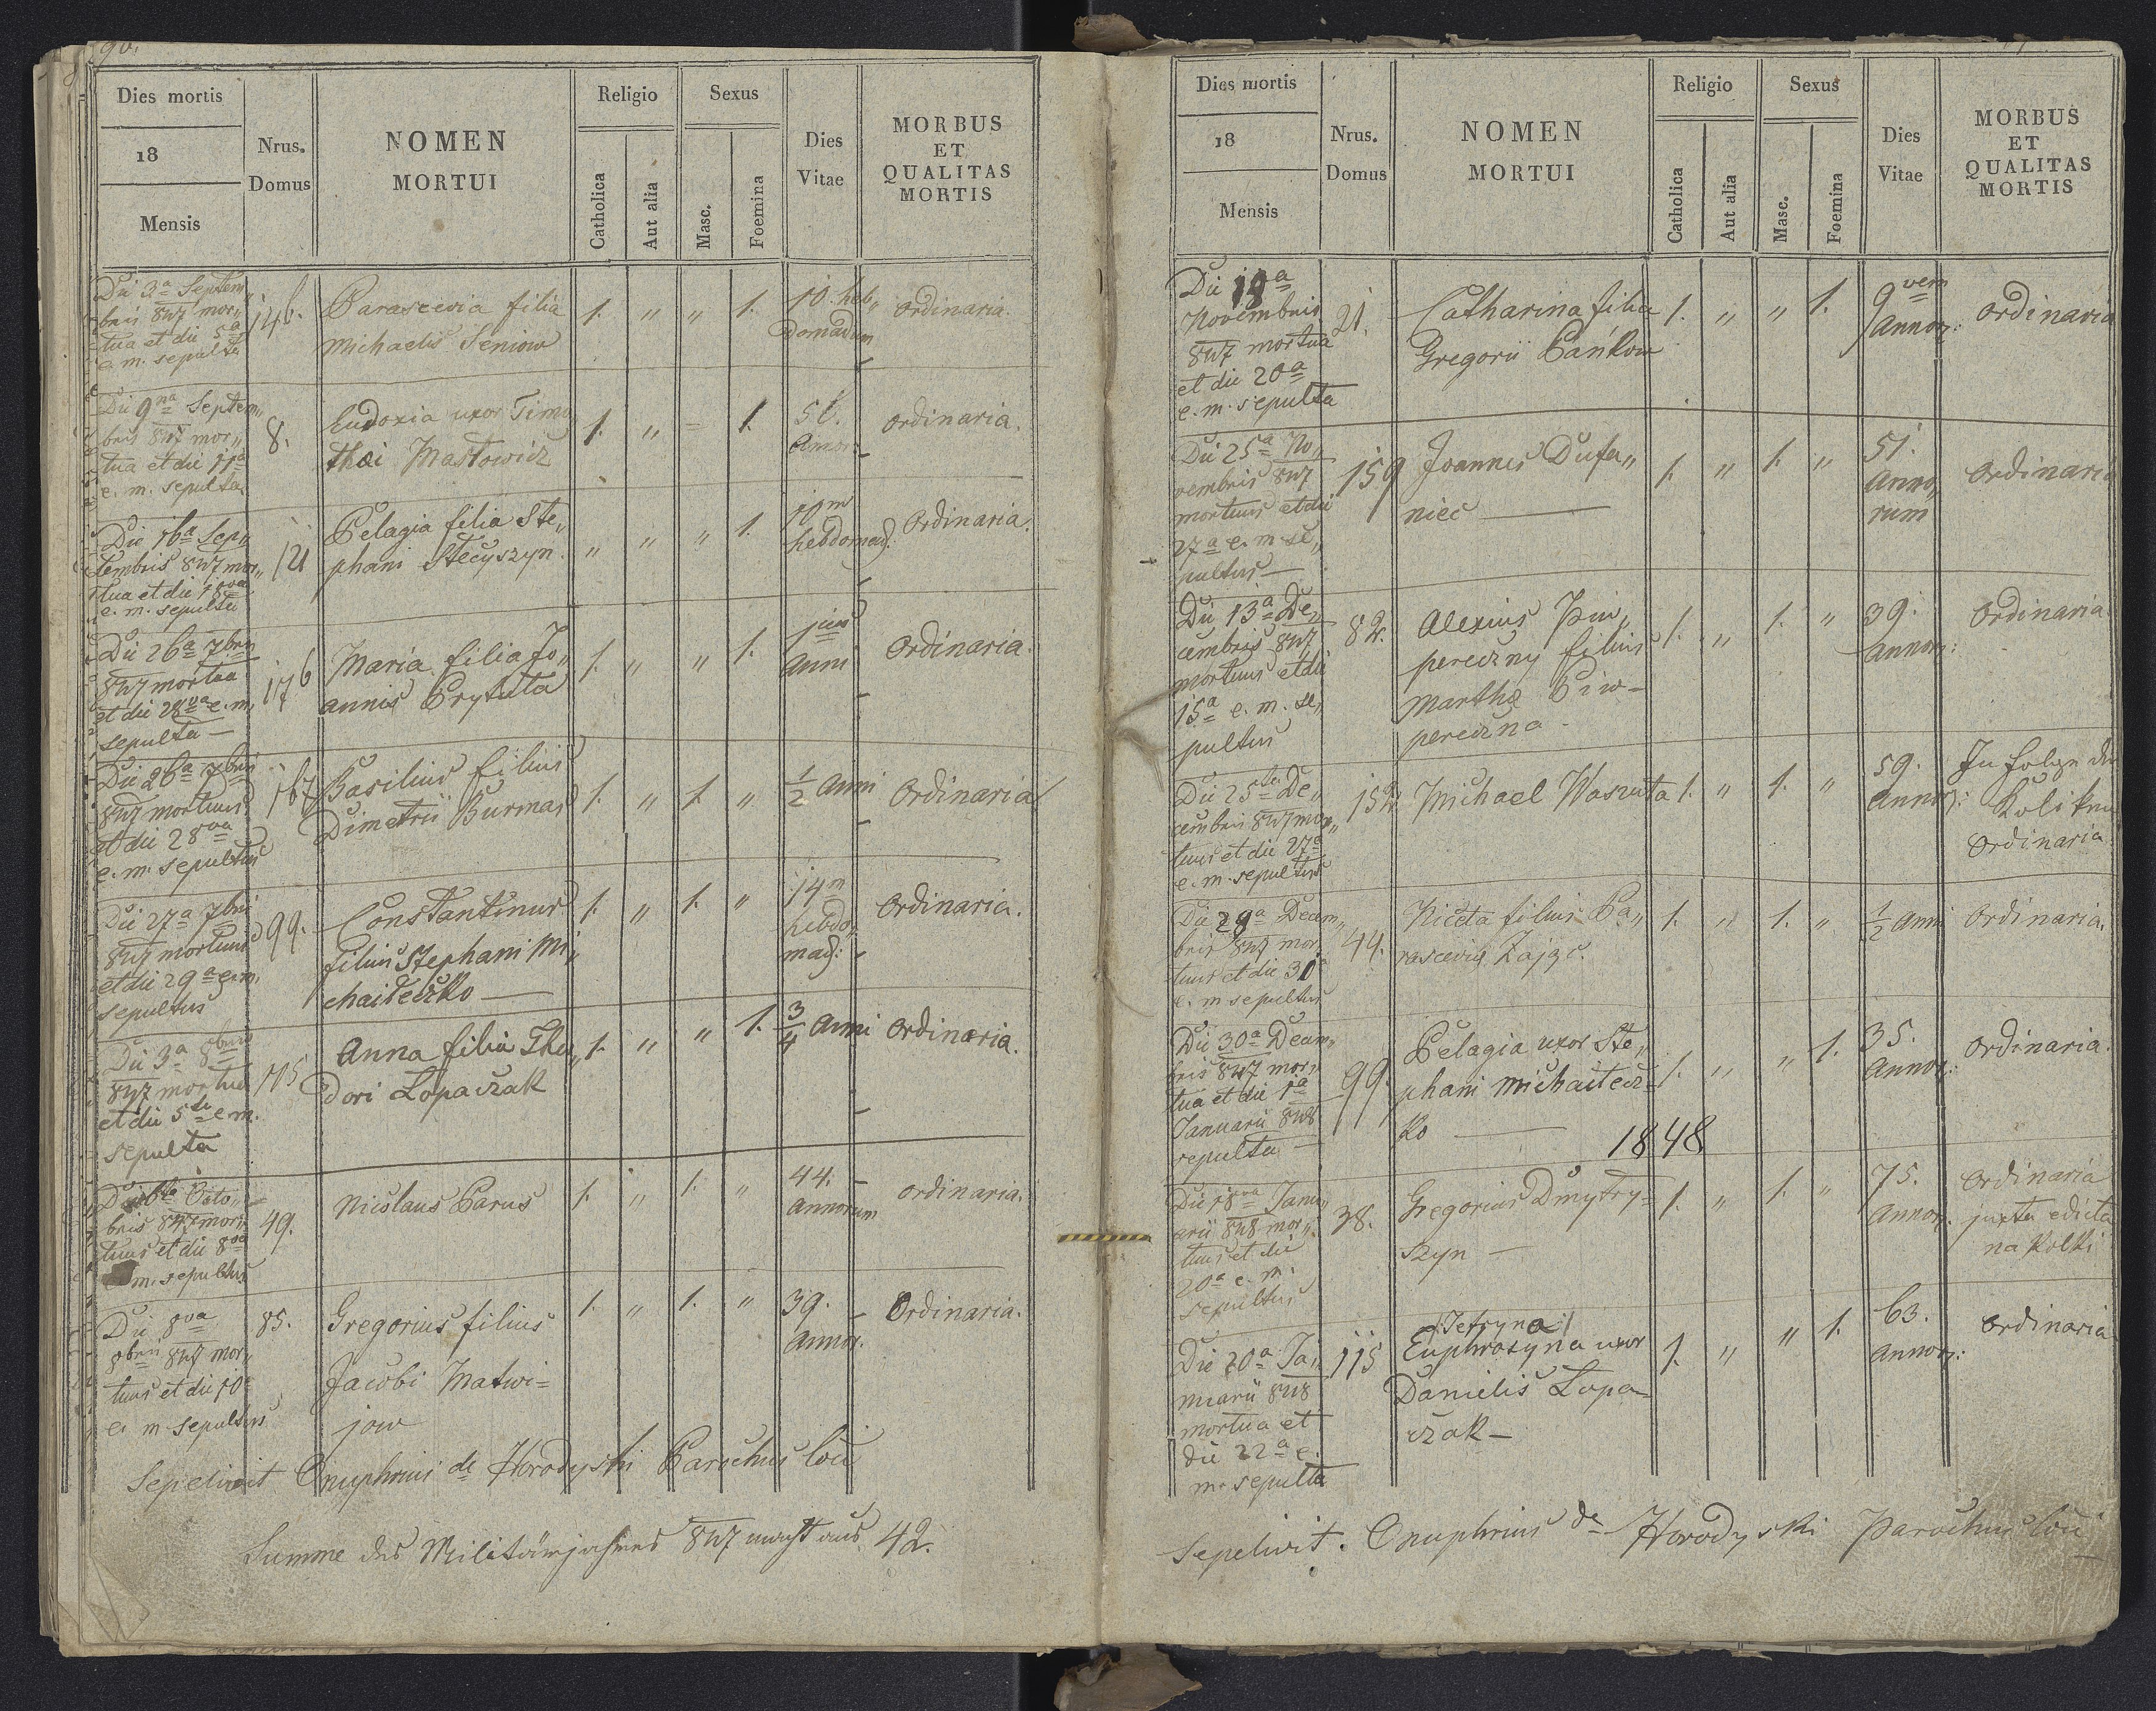 90.
Dies mortis
18
Mensis
Nrus.
Domus
NOMEN
MORTUI
Religio
Catholica
Aut alia
Sexus
Masc.
Foemina
Dies
Vitae
MORBUS
ET
QUALITAS
MORTIS
Die 3a Septem„
bris 847 mor„
tua et die 5a
e. m. sepulta
146.
Parascevia filia
Michaelis Seniow
1. „ „ 1.
10. heb„
domadum
ordinaria.
Die 9na Septem„
bris 847 mor„
tua et die 11a
e. m. sepulta
8.
Eudoxia uxor Timo
thei Masłowicz
1. „ – 1.
ordinaria.
Die 16a Sep„
tembris 847 mor„
tua et die 18va
e. m. sepulta
121
Pelagia filia Ste„
phani Stecyszyn.
„ „ „ 1.
10m
hebdomad.
Ordinaria.
Die 26a 7bris
847 mortua
et die 28va e. m.
sepulta —
176
Maria filia Jo„
annis Prytuła
1. „ „ 1.
anni
Ordinaria.
Die 26a 7bris
847 mortuus
et die 28va
e. m. sepultus
167
Basilius filius
Dimetrii Burmas
1. „ 1. „
1/2 anni
Ordinaria
Die 27a 7bris
847 mortuus
et die 29a e. m.
sepultus
99.
Constantinus
filius Stephani Mi„
chaiłeczko —
1. „ 1. „
14m
hebdo„
mad:
Ordinaria.
Die 3a 8bris
847 mortua
et die 5ta e m.
sepulta
115
Anna filia Theo„
dori Łopaczak
1. „ „ 1.
3/4 anni
Ordinaria.
Die 6ta Octo„
bris 847 mor„
tuus et die 8va
m. sepultus
49.
Nicolaus Parus
1. „ 1. „
44.
annorum
ordinaria.
Die 8va
8bris 847 mor„
tuus et die 10a
e. m. sepultus
85.
Gregorius filius
Jacobi Matwi=
jow
1. „ 1. „
39.
annor.
Ordinaria.
Sepelivit Onuphrius de Horodyski Parochus loci
Summe des Militärjahres 847 macht aus 42.
Dies mortis
18
Mensis
Nrus.
Domus
NOMEN
MORTUI
Religio
Catholica
Aut alia
Sexus
Masc.
Foemina
Dies
Vitae
MORBUS
ET
QUALITAS
MORTIS
Die 18a
Novembris
847 mortua
et die 20a
e. m. sepulta
21.
Catharina filia
Gregorii Pańkow
1. „ „ 1.
9vem
annor:
Ordinaria
Die 25a No„
vembris 847
mortuus et die
27a e. m. se„
pultus —
159
Joannes Dufa„
niec —
1. „ 1. „
51.
anno„
rum
Ordinaria
Die 13a De„
cembris 847
mortuus et die
15a e. m. se„
pultus
82.
Alexius Piw„
pereczny filius
Marthæ Piw–
pereczna –
1. „ 1. „
39.
annor:
Ordinaria.
Die 25ta De„
cembris 847 mor„
tuus et die 27a
e. m. sepultus
152
Michael Waszuta
1. „ 1. „
59.
annor:
In folge der
Kolik
Ordinaria
Die 29a Decem„
bris 847 mor„
tuus et die 31a
e. m sepultus
44.
Niceta filius Pa„
rasceviæ Zając.
1. „ 1. „
1/2 anni
Ordinaria.
Die 30a Decem„
bris 847 mor„
tua et die 1a
Januarii 848
sepulta —
99.
Pelagia uxor Ste„
phani Michaiłecz=
ko —
1. „ „ 1.
35.
annor:
Ordinaria.
1848
Die 18va Janu„
arii 848 mor„
tuus et die
20a e. m.
sepultus
38.
Gregorius Dmytry=
szyn —
1. „ 1. „
75.
annor.
Ordinaria
juxta edicta
na Kolki
Die 20a Ja„
nuarii 848
mortua et
die 22a e.
m. sepulta
115
/Jefryna/
Euphrosyna uxor
Danielis Łopa–
czak –
1. „ „ 1.
63.
annor:
Ordinaria
Sepelivit. Onuphrius de Horodyski Parochus loci